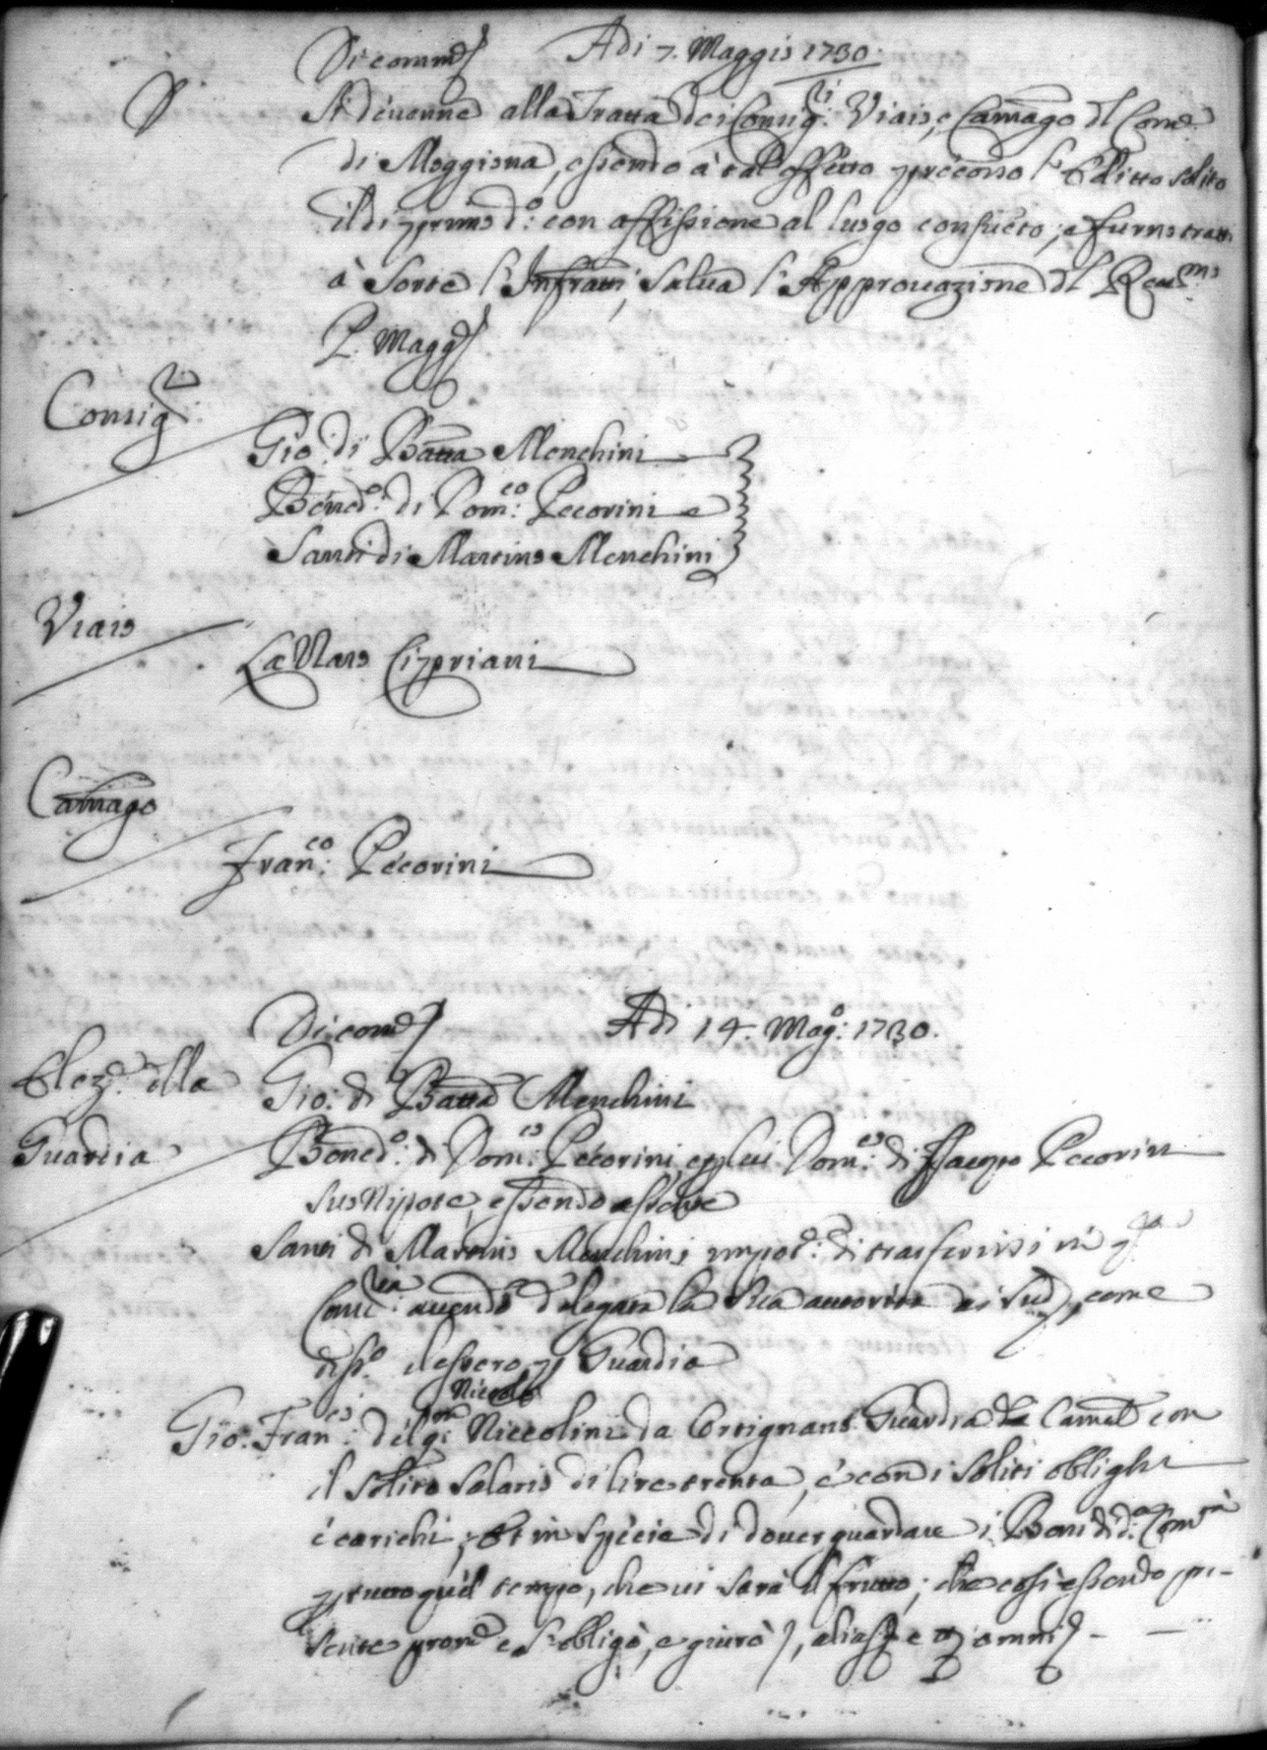 Di comand Adi 7. Maggio 1730.
Si devenne alla Tratta dei Consig:ri Viaio, e Camago dl Come
di Moggiona, essendo à tal effetto precorso l'Editto solito
il di primo d:o con affissione al luogo consueto; e furno tratti
à Sorte l'Infratti, salva l'Approvazione dl Reu:mo
P. Magg
Consig:ri
Gio: di Batta Menchini
Bened:o di Dom:co Pecorini e
Santi di Martino Menchini
Viaio
Lattanzio Cipriani
Camago
Fran:co Pecorini
Di comd Adi 14. Mag:o 1730.
Elez:e della
Guardia
Gio: di Batta Menchini
Bened:o di Dom:co Pecorini, e p lui Dom:co di Jacopo Pecorini
suo Nipote, essendo assente
Santi di Martino Menchini impot:e di trasferirsi in q:ta
Canc:ria avendo delegata la sua autorità ai sud, come
diss:o elessero p Guardia
Niccolò
Gio: Fran:co del q:m Niccolini da Ortignano Guardia da Camp con
il solito salario di lire trenta, e con i soliti oblighi
e carichi, et in specie di dover guardare i Beni di d:a Com:tà
p tutto quel tempo, che vi sarà il frutto; che così essendo pre-
sente prom:e e si obligò, e giurò, alias e omni